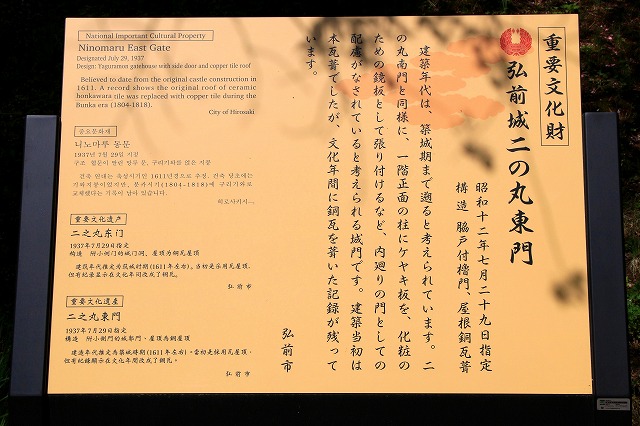 重要文化財
弘前城二の丸東門
昭和十二年七月二十九日指定
構造 脇戸付櫓門、屋根銅瓦葺
建築年代は、築城期まで遡ると考えられています。二
の丸南門と同様に、一階正面の柱にケヤキ板を、化粧の
ための鏡板として張り付けるなど、内廻りの門としての
配慮がなされていると考えられる城門です。建築当初は
本瓦葺でしたが、文化年間に銅瓦を葺いた記録が残って
います。
弘前市
National Important Cultural Property
Ninomaru East Gate
Designated July 29, 1937
Design: Yaguramon gatehouse with side door and copper tile roof
Believed to date from the original castle construction in
1611. A record shows the original roof of ceramic
honkawara tile was replaced with copper tile during the
Bunka era (1804-1818).
City of Hirosaki
중요문화재
니노마루 동문
1937년 7월 29일 지정
구조 협문이 딸린 망루 문, 구리기와를 얹은 지붕
건축 연대는 축성시기인 1611년경으로 추정. 건축 당초에는
기와지붕이었지만, 분카시기(1804-1818)에 구리기와로
교체했다는 기록이 남아 있습니다.
히로사키시
重要文化遗产
二之丸东门
1937年7月29日指定
构造 附小侧门的城门洞、屋顶为铜瓦屋顶
建筑年代推定为筑城时期(1611年左右)。当初是采用瓦屋顶,
但有纪录显示在文化年间改成了铜瓦。
弘前市
重要文化遺產
二之丸東門
1937年7月29日指定
構造 附小側門的城廓門、屋頂為銅屋頂
建造年代推定為築城時期(1611年左右)。當初是採用瓦屋頂,
但有紀錄顯示在文化年間改成了銅瓦。
弘前市